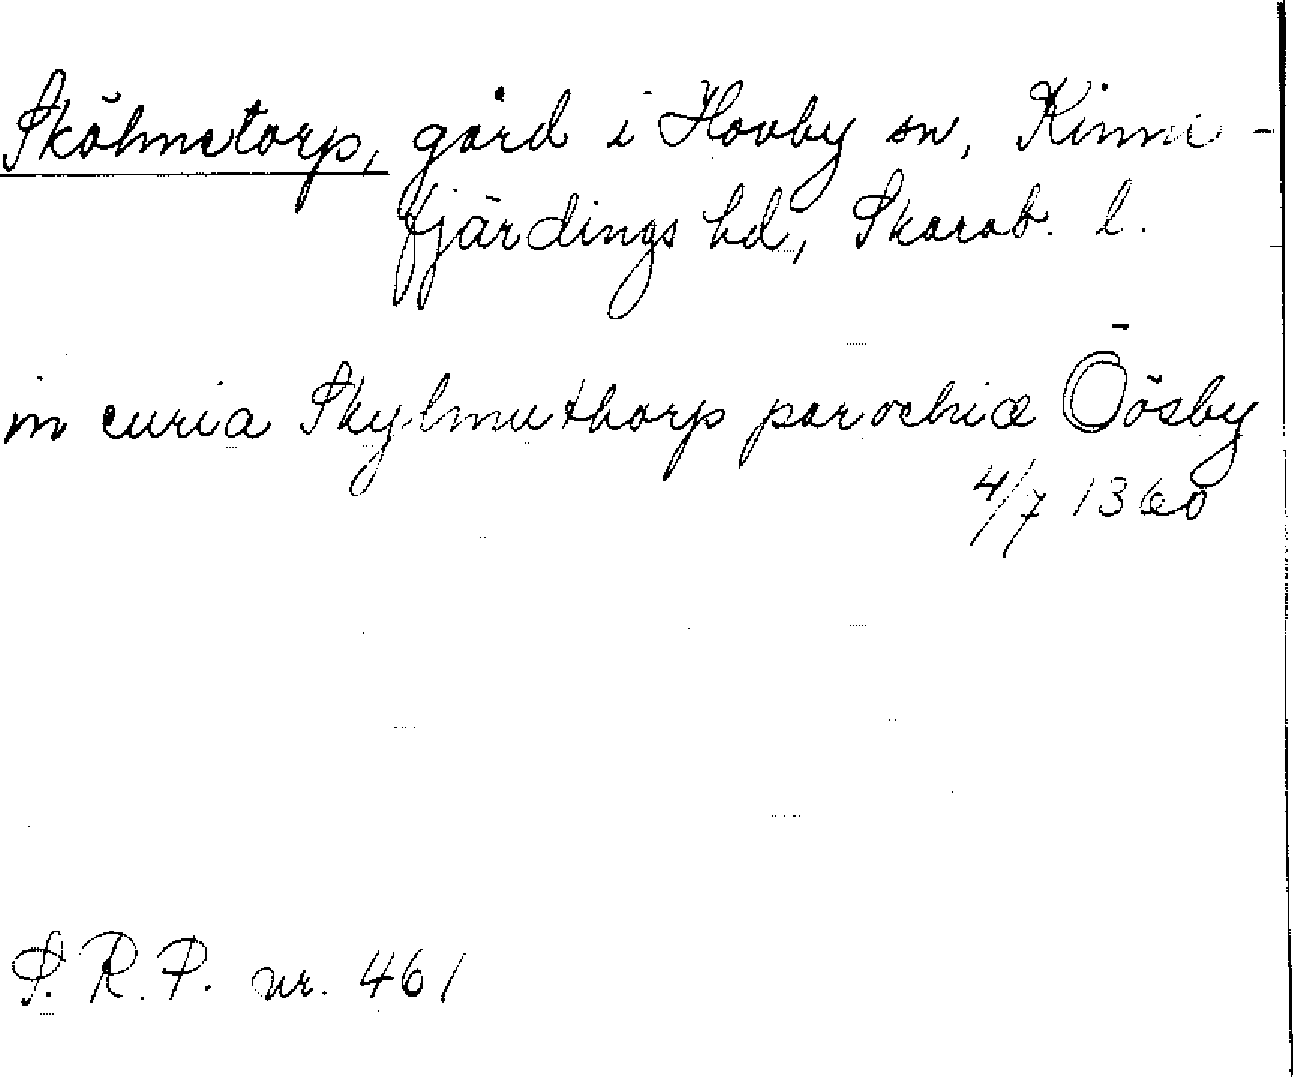 Skölmetorp, gård i Hovby sn, Kinne-
fjärdings hd, Skarab. l.
in curia Skylmuthorp parochiæ Öösby
4/7 1360
S. R. P. nr. 461